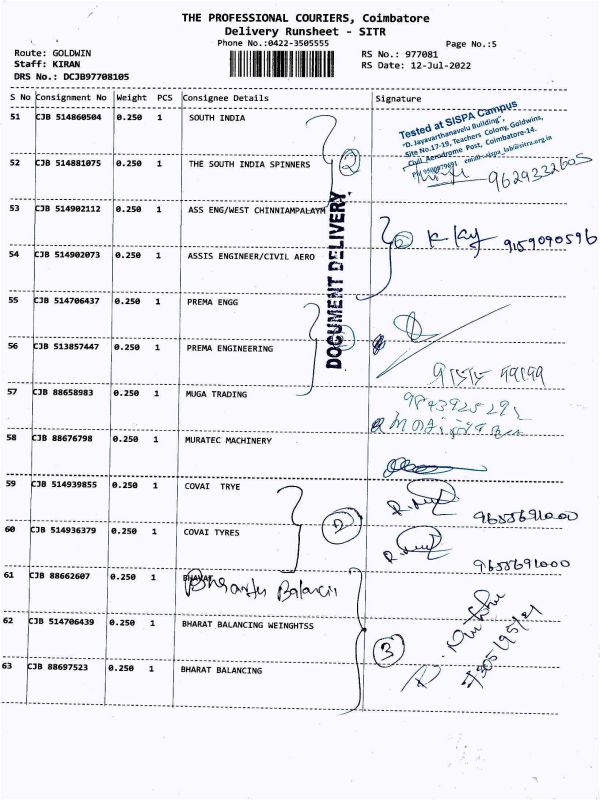 THE PROFESSIONAL COURIERS, Coimbatore
Delivery Runsheet - SITR
Phone No.:0422-3505555
Page No.:5
Route: GOLDWIN
Staff: KIRAN
DRS No.: DCJB97708105
RS No.: 977081
RS Date: 12-Jul-2022
S No Consignment No Weight PCS Consignee Details Signature
51 CJB 514860504 0.250 1 SOUTH INDIA
Tested at SISPA Campus
"D. Jayavarthanavelu Building",
Site No.17-19, Teachers Colony, Goldwins,
Civil Aerodrome Post, Coimbatore-14.
52 CJB 514881075 0.250 1 THE SOUTH INDIA SPINNERS 9629332605
2
DOCUMENT DELIVERY
53 CJB 514902112 0.250 1 ASS ENG/WEST CHINNIAMPALAYM
9159090596
54 CJB 514902073 0.250 1 ASSIS ENGINEER/CIVIL AERO
55 CJB 514706437 0.250 1 PREMA ENGG
56 CJB 513857447 0.250 1 PREMA ENGINEERING
57 CJB 88658983 0.250 1 MUGA TRADING
58 CJB 88676798 0.250 1 MURATEC MACHINERY
59 CJB 514939855 0.250 1 COVAI TRYE
9655691000
2
60 CJB 514936379 0.250 1 COVAI TYRES
9655691000
61 CJB 88662607 0.250 1 BHAVAT
62 CJB 514706439 0.250 1 BHARAT BALANCING WEINGHTSS
3
63 CJB 88697523 0.250 1 BHARAT BALANCING